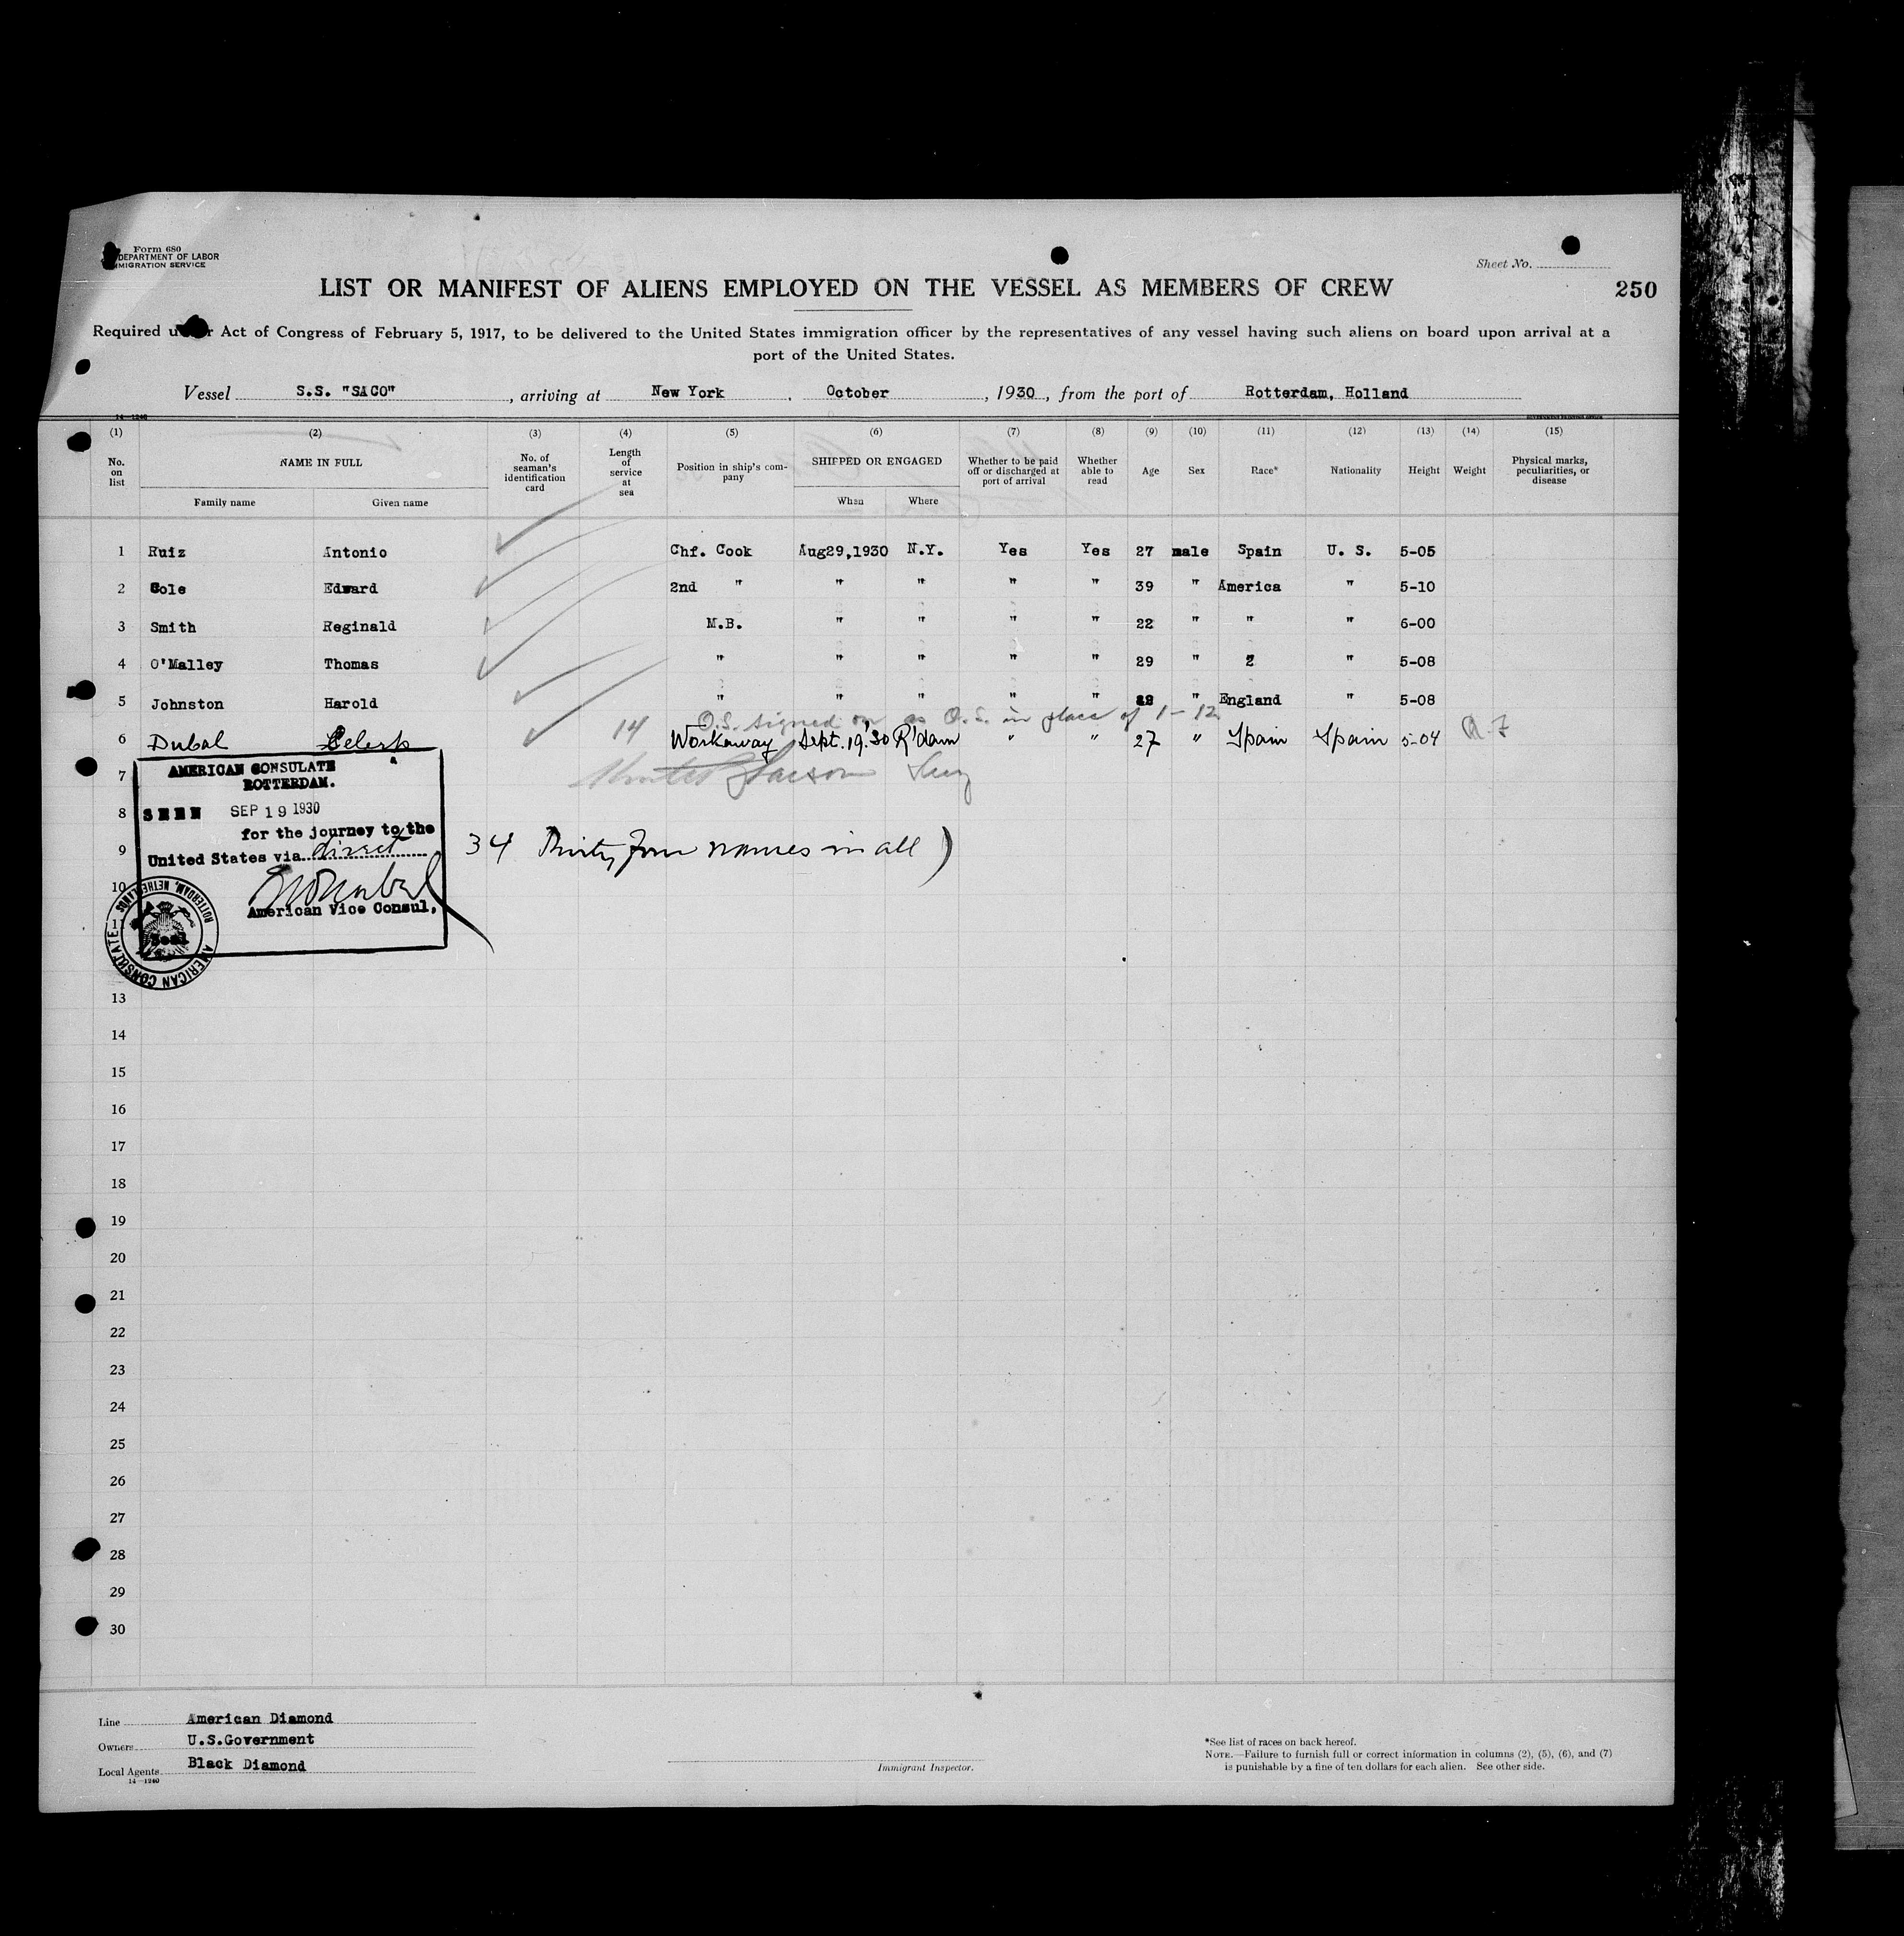 Form 680
DEPARTMENT OF LABOR
IMMIGRATION SERVICE
Sheet No.
LIST OR MANIFEST OF ALIENS EMPLOYED ON THE VESSEL AS MEMBERS OF CREW
250
Required under Act of Congress of February 5, 1917, to be delivered to the United States immigration officer by the representatives of any vessel having such aliens on board upon arrival at a
port of the United States.
Vessel S.S. "SACO" , arriving at New York , October , 1930 , from the port of Rotterdam, Holland
14-1240
(1) (2) (3) (4) (5) (6) (7) (8) (9) (10) (11) (12) (13) (14) (15)
No. on list NAME IN FULL No. of seaman's identification card Length of service at sea Position in ship's company SHIPPED OR ENGAGED Whether to be paid off or discharged at port of arrival Whether able to read Age Sex Race* Nationality Height Weight Physical marks, peculiarities, or disease
Family name Given name When Where
1 Ruiz Antonio Chf. Cook Aug29,1930 N.Y. Yes Yes 27 male Spain U. S. 5-05
2 Cole Edward 2nd " " " " " 39 " America " 5-10
3 Smith Reginald M.B. " " " " 22 " " " 6-00
4 O'Malley Thomas " " " " " 29 " 2 " 5-08
5 Johnston Harold " " " " " " England " 5-08
O.S. signed on as O.S. in place of 1-12
6 Dubal 14 Workaway Sept. 19, '30 R'dam " " 27 " Spain Spain 5-04
7
AMERICAN CONSULATE
ROTTERDAM.
8
SEEN SEP 19 1930
for the journey to the
9
United States via direct
34 Thirty four names in all)
10
American Vice Consul.
11
Seal
AMERICAN CONSULATE ROTTERDAM, NETHERLANDS
13
14
15
16
17
18
19
20
21
22
23
24
25
26
27
28
29
30
Line American Diamond
Owners U.S.Government
Local Agents Black Diamond
14-1240
Immigrant Inspector.
*See list of races on back hereof.
NOTE.—Failure to furnish full or correct information in columns (2), (5), (6), and (7)
is punishable by a fine of ten dollars for each alien. See other side.